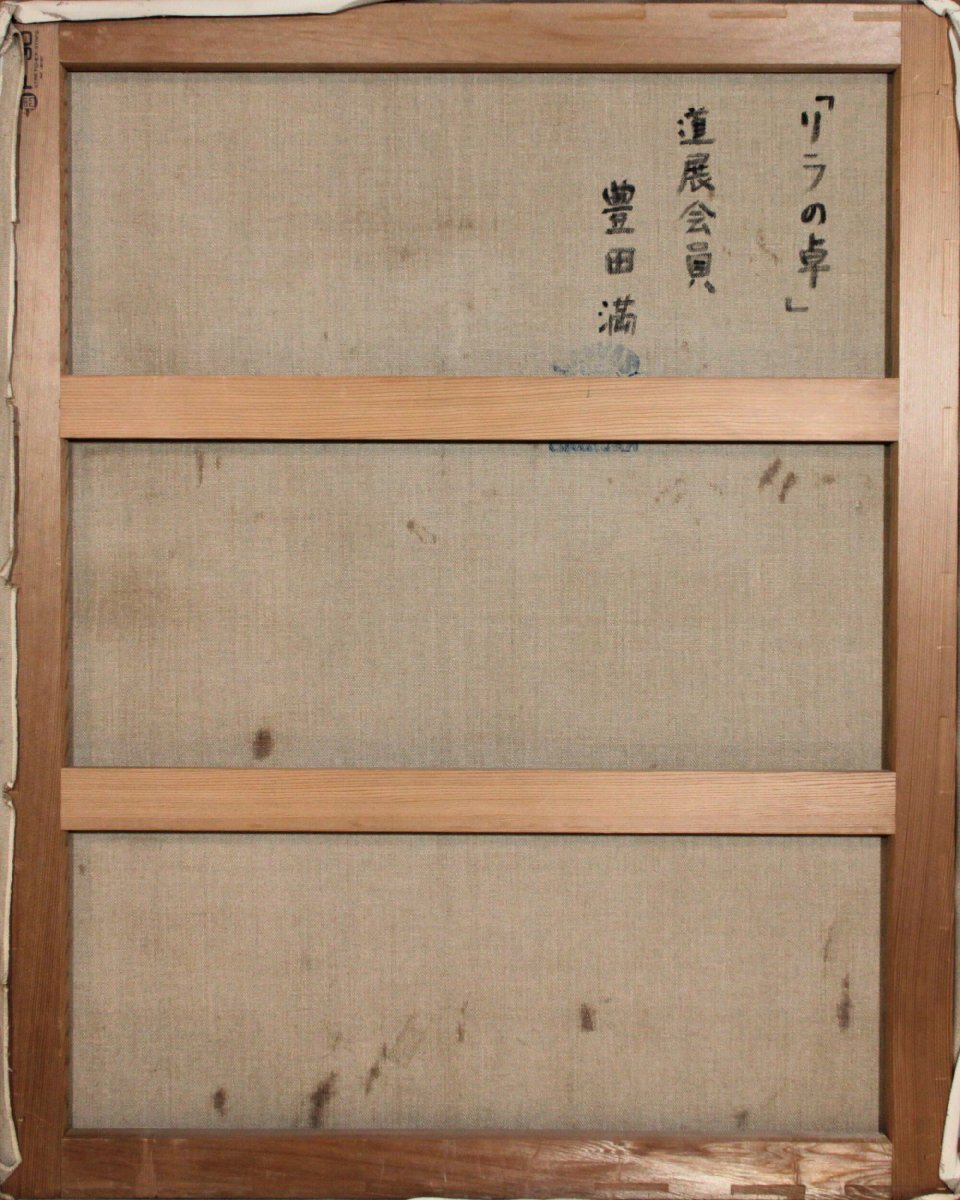 「リラの卓」
道展会員
豊田満